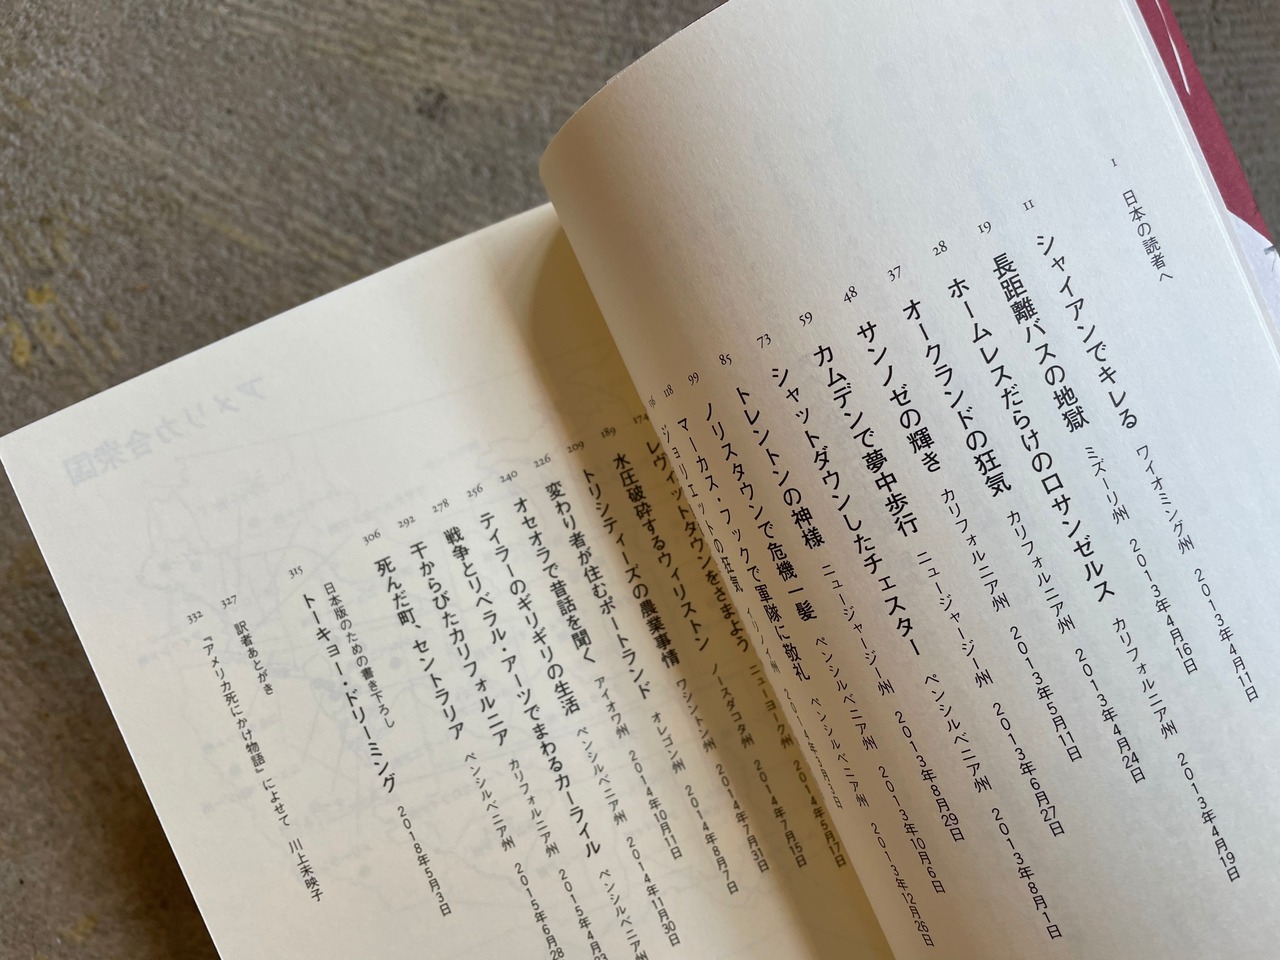 1 日本の読者へ
11 シャイアンでキレる ワイオミング州 2013年4月11日
19 長距離バスの地獄 ミズーリ州 2013年4月16日
28 ホームレスだらけのロサンゼルス カリフォルニア州 2013年4月19日
37 オークランドの狂気 カリフォルニア州 2013年4月24日
48 サンノゼの輝き カリフォルニア州 2013年5月11日
59 カムデンで夢中歩行 ニュージャージー州 2013年6月27日
73 シャットダウンしたチェスター ペンシルベニア州 2013年8月1日
85 トレントンの神様 ニュージャージー州 2013年8月29日
99 ノリスタウンで危機一髪 ペンシルベニア州 2013年10月6日
118 マーカス・フックで軍隊に敬礼 ペンシルベニア州 2013年12月26日
ジョリエットの狂気 イリノイ州 2014年3月3日
174 レヴィットタウンをさまよう ニューヨーク州 2014年5月17日
189 水圧破砕するウィリストン ノースダコタ州 2014年7月15日
209 トリシティーズの農業事情 ワシントン州 2014年7月31日
226 変わり者が住むポートランド オレゴン州 2014年8月7日
240 オセオラで昔話を聞く アイオワ州 2014年10月1日
256 テイラーのギリギリの生活 ペンシルベニア州 2014年11月30日
278 戦争とリベラル・アーツでまわるカーライル ペンシルベニア州
292 干からびたカリフォルニア カリフォルニア州 2015年4月23
306 死んだ町、セントラリア ペンシルベニア州 2015年6月28
315 日本版のための書き下ろし
トーキョー・ドリーミング 2018年5月3日
327 訳者あとがき
332 『アメリカ死にかけ物語』によせて 川上未映子
アメリカ合衆国